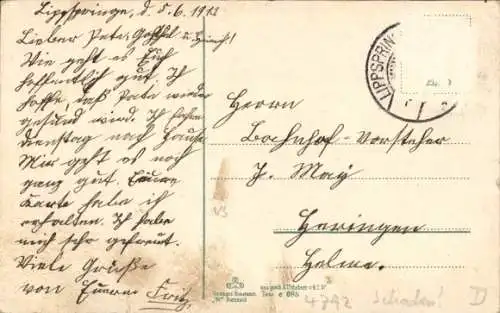 Lippspringe, d. 5.6.1912
Lieber Pate, Gotthilf u. Heinch!
Wie geht es Euch
hoffentlich gut. Ich
hoffe daß Pate wieder
gesund wird. Ich fahre
dienstag nach Hause
Mir geht es noch
ganz gut. Eure
Karte habe ich
erhalten. Ich habe
mich sehr gefreut.
Viele Grüße
von Eurem Fritz
LIPPSPRIN
Herrn
Bachnhof-Vorsteher
J. May
Heringen
Helme.
4792 Schaden! D